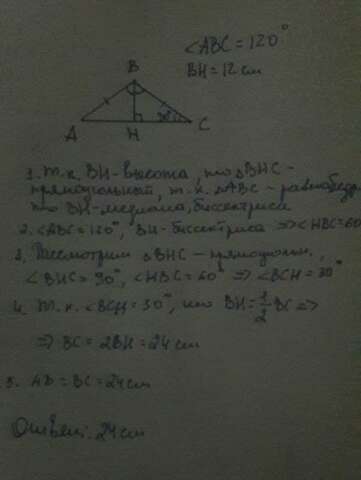 <ABC = 120°
BH = 12 см
B
A
H
C
1. т.к. BH - высота, то △BHC -
прямоугольный, т.к. △ABC - равнобедр.
то BH - медиана, биссектриса
2. <ABC = 120°, BH - биссектриса => <HBC = 60
3. Рассмотрим △BHC - прямоугольн.,
<BHC = 90°, <HBC = 60° => <BCH = 30°
4. Т.к. <BCH = 30°, то BH = 1/2 BC =>
=> BC = 2BH = 24 см
5. AB = BC = 24 см
Ответ: 24 см